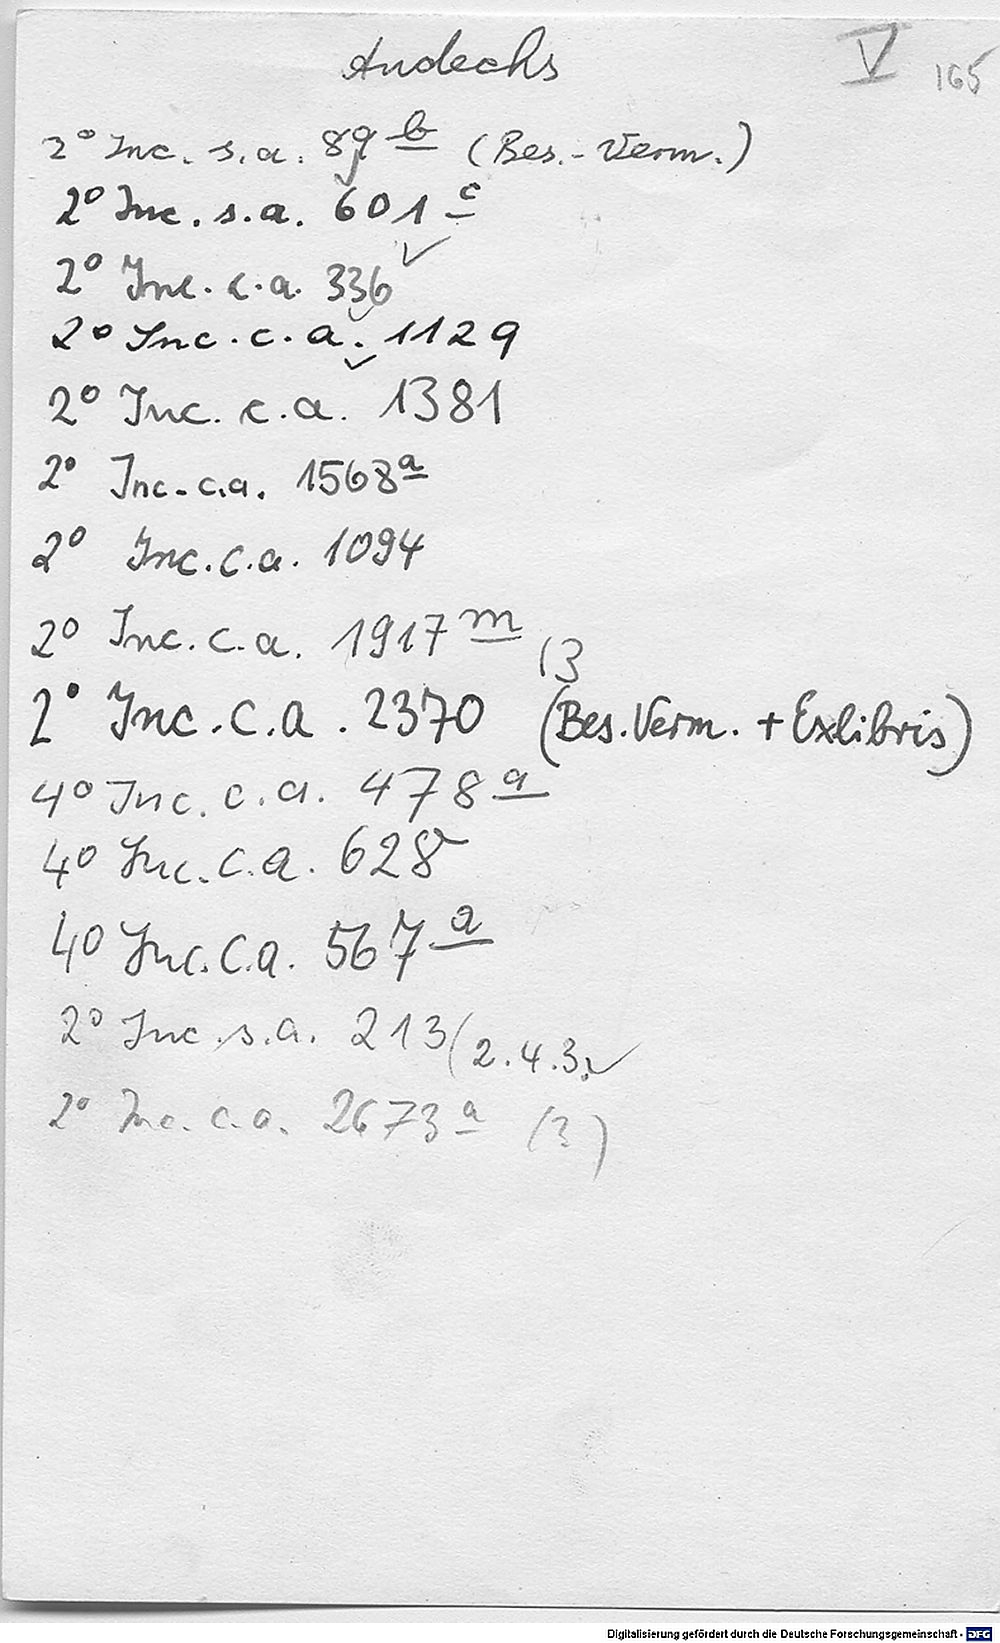 Andechs V 165
2° Inc. s.a. 89 b (Bes.-Verm.)
2° Inc. s.a. 601 c
2° Inc. c.a. 336 ✓
2° Inc. c.a. 1129
2° Inc. c.a. 1381
2° Inc. c.a. 1568 a
2° Inc. c.a. 1094
2° Inc. c.a. 1917 m (3
2° Inc. c.a. 2370 (Bes. Verm. + Exlibris)
4° Inc. c.a. 478 a
4° Inc. c.a. 628
4° Inc. c.a. 567 a
2° Inc. s.a. 213 (2.4.3. ✓
2° Inc. c.a. 2673 a (3)
Digitalisierung gefördert durch die Deutsche Forschungsgemeinschaft - DFG